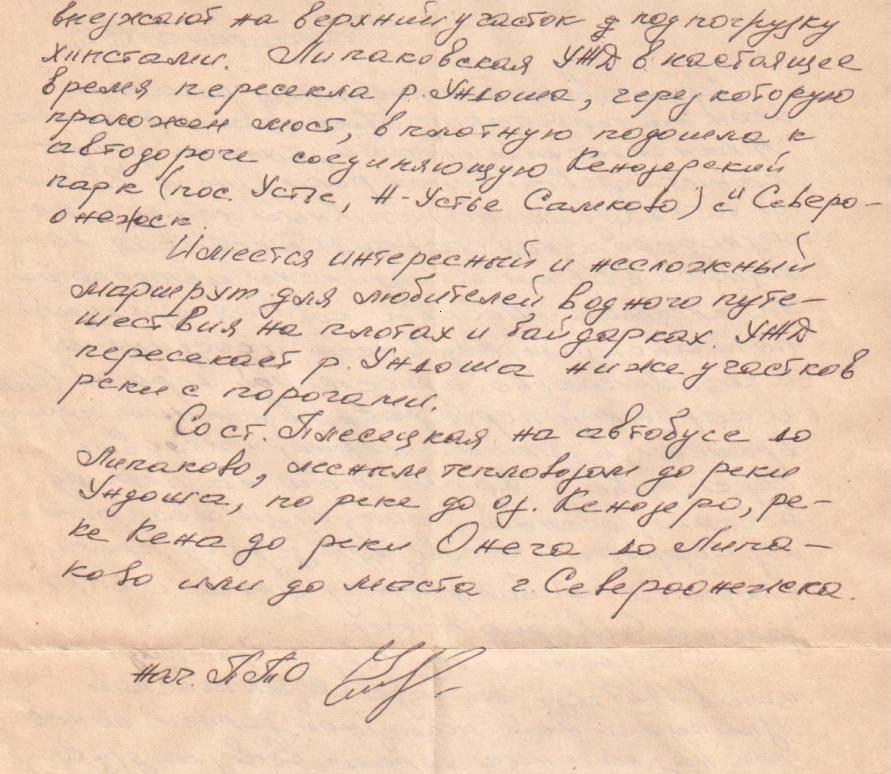 въезжают на верхний участок д под погрузку
хлыстами. Липаковская УЖД в настоящее
время пересекла р. Ундоша, через которую
проложен мост, вплотную подошла к
автодороге соединяющую Кенозерский
парк (пос. Устье, Н-Устье Самково) и Северо-
онежск.
Имеется интересный и несложный
маршрут для любителей водного путе-
шествия на плотах и байдарках. УЖД
пересекает р. Ундоша ниже участков
реки с порогами.
Со ст. Плесецкая на автобусе до
Липаково, лесным тепловозом до реки
Ундоша, по реке до оз. Кенозеро, ре-
ке Кена до реки Онега до Липа-
ково или до моста г. Североонежска.
нач. ППО